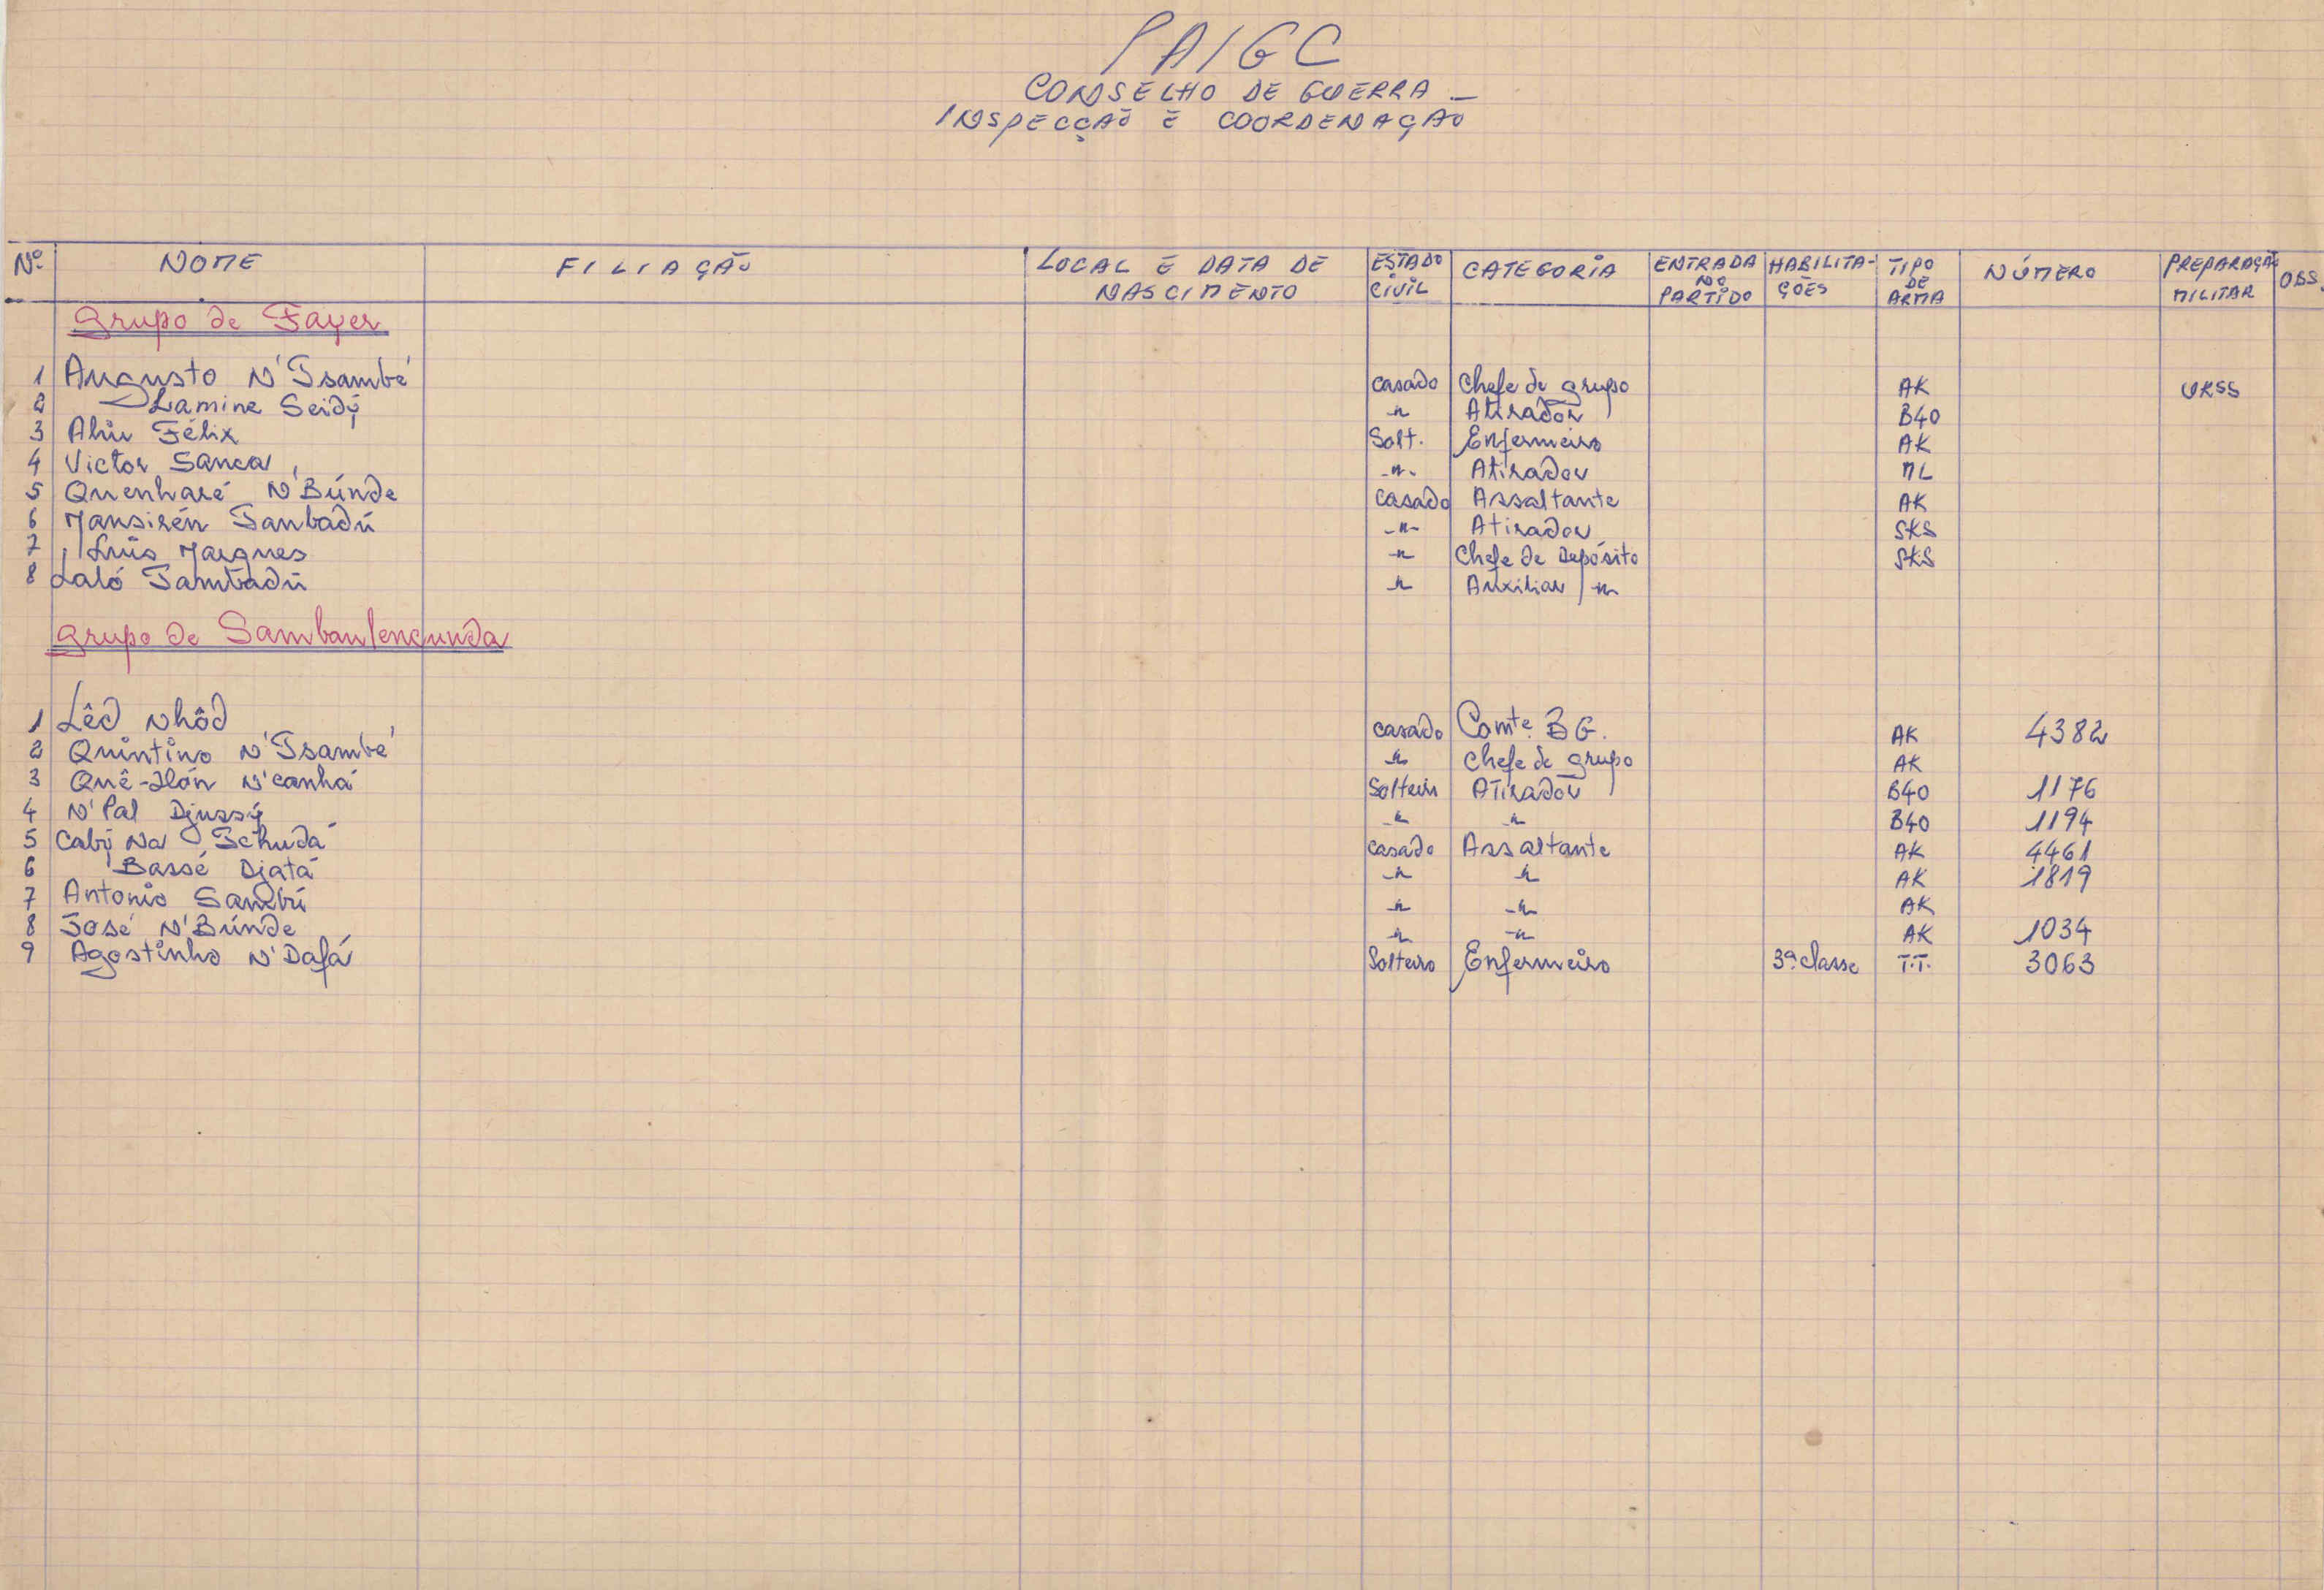 PAIGC
CONSELHO DE GUERRA –
INSPECÇÃO E COORDENAÇÃO
Nº NOME FILIAÇÃO LOCAL E DATA DE NASCIMENTO ESTADO CIVIL CATEGORIA ENTRADA NO PARTIDO HABILITA-ÇÕES TIPO DE ARMA NÚMERO PREPARAÇÃO MILITAR OBS.
Grupo de Fayer
1 Augusto N'Tsambé casado Chefe de grupo AK URSS
2 Lamine Seidý -"- Atirador B40
3 Félix Solt. Enfermeiro AK
4 Victor Sanca -"- Atirador ML
5 Quenharé N'Búnde casado Assaltante AK
6 Mansirén Tambadú -"- Atirador SKS
7 Luís Marques -"- Chefe de Depósito SKS
8 Laló Tambadú -"- Auxiliar -"-
Grupo de
1 Lêd Nhôd casado Comte. BG. AK 4382
2 Quintino N'Tsambé -"- Chefe de grupo AK
3 N'canhá Solteiro Atirador B40 1176
4 N'Pal Djussý -"- -"- B40 1194
5 Cabý Na Tchudá casado Assaltante AK 4461
6 Bassé Djatá -"- -"- AK 1819
7 Antonio Sambú -"- -"- AK
8 José N'Búnde -"- -"- AK 1034
9 Agostinho N'Dafá Solteiro Enfermeiro 3ª classe T.T. 3063